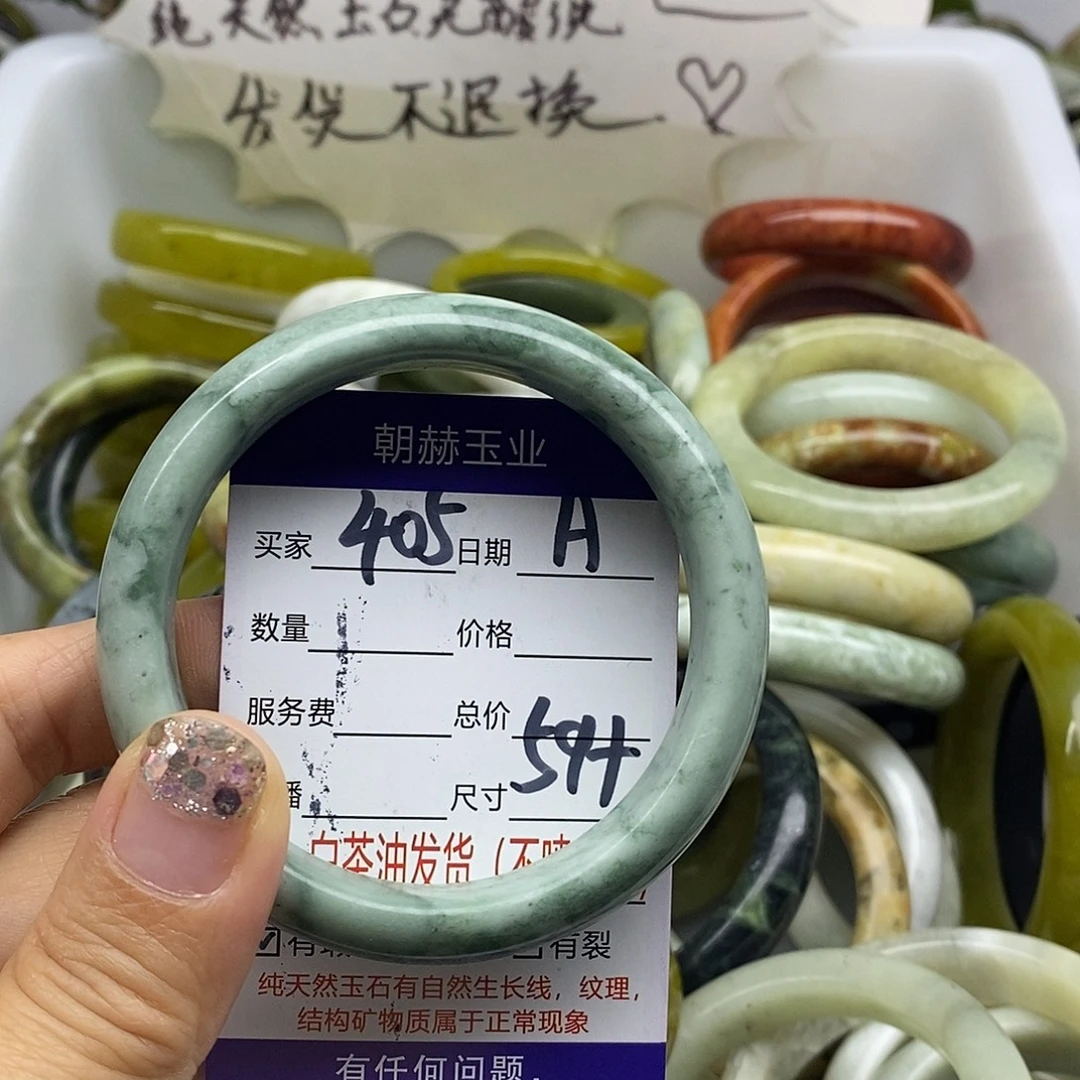 纯天然玉石无酸洗
发货不退换
朝赫玉业
买家 405 日期 A
数量 价格
服务费 总价
播 尺寸 544
白茶油发货（不
有 有裂
纯天然玉石有自然生长线，纹理，
结构矿物质属于正常现象
有任何问题，